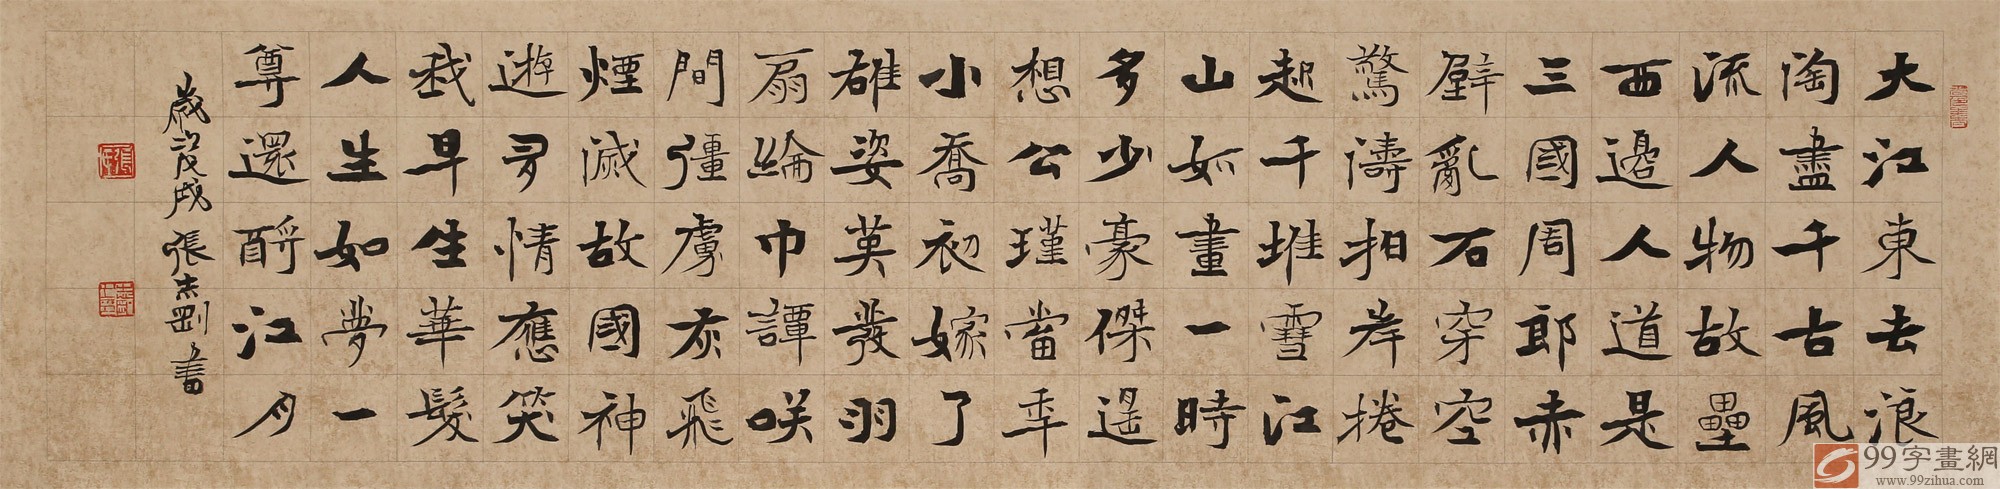 大江東去浪
陶盡千古風
流人物故壘
西邊人道是
三國周郎赤
壁亂石穿空
驚濤拍岸捲
起千堆雪江
山如畫一時
多少豪傑遥
想公瑾當年
小喬初嫁了
雄姿英發羽
扇綸巾譚咲
間彊虜灰飛
煙滅故國神
遊多情應笑
我早生華髮
人生如夢一
尊還酹江月
歲次戊戌張志剛書
99字畫網
www.99zihua.com